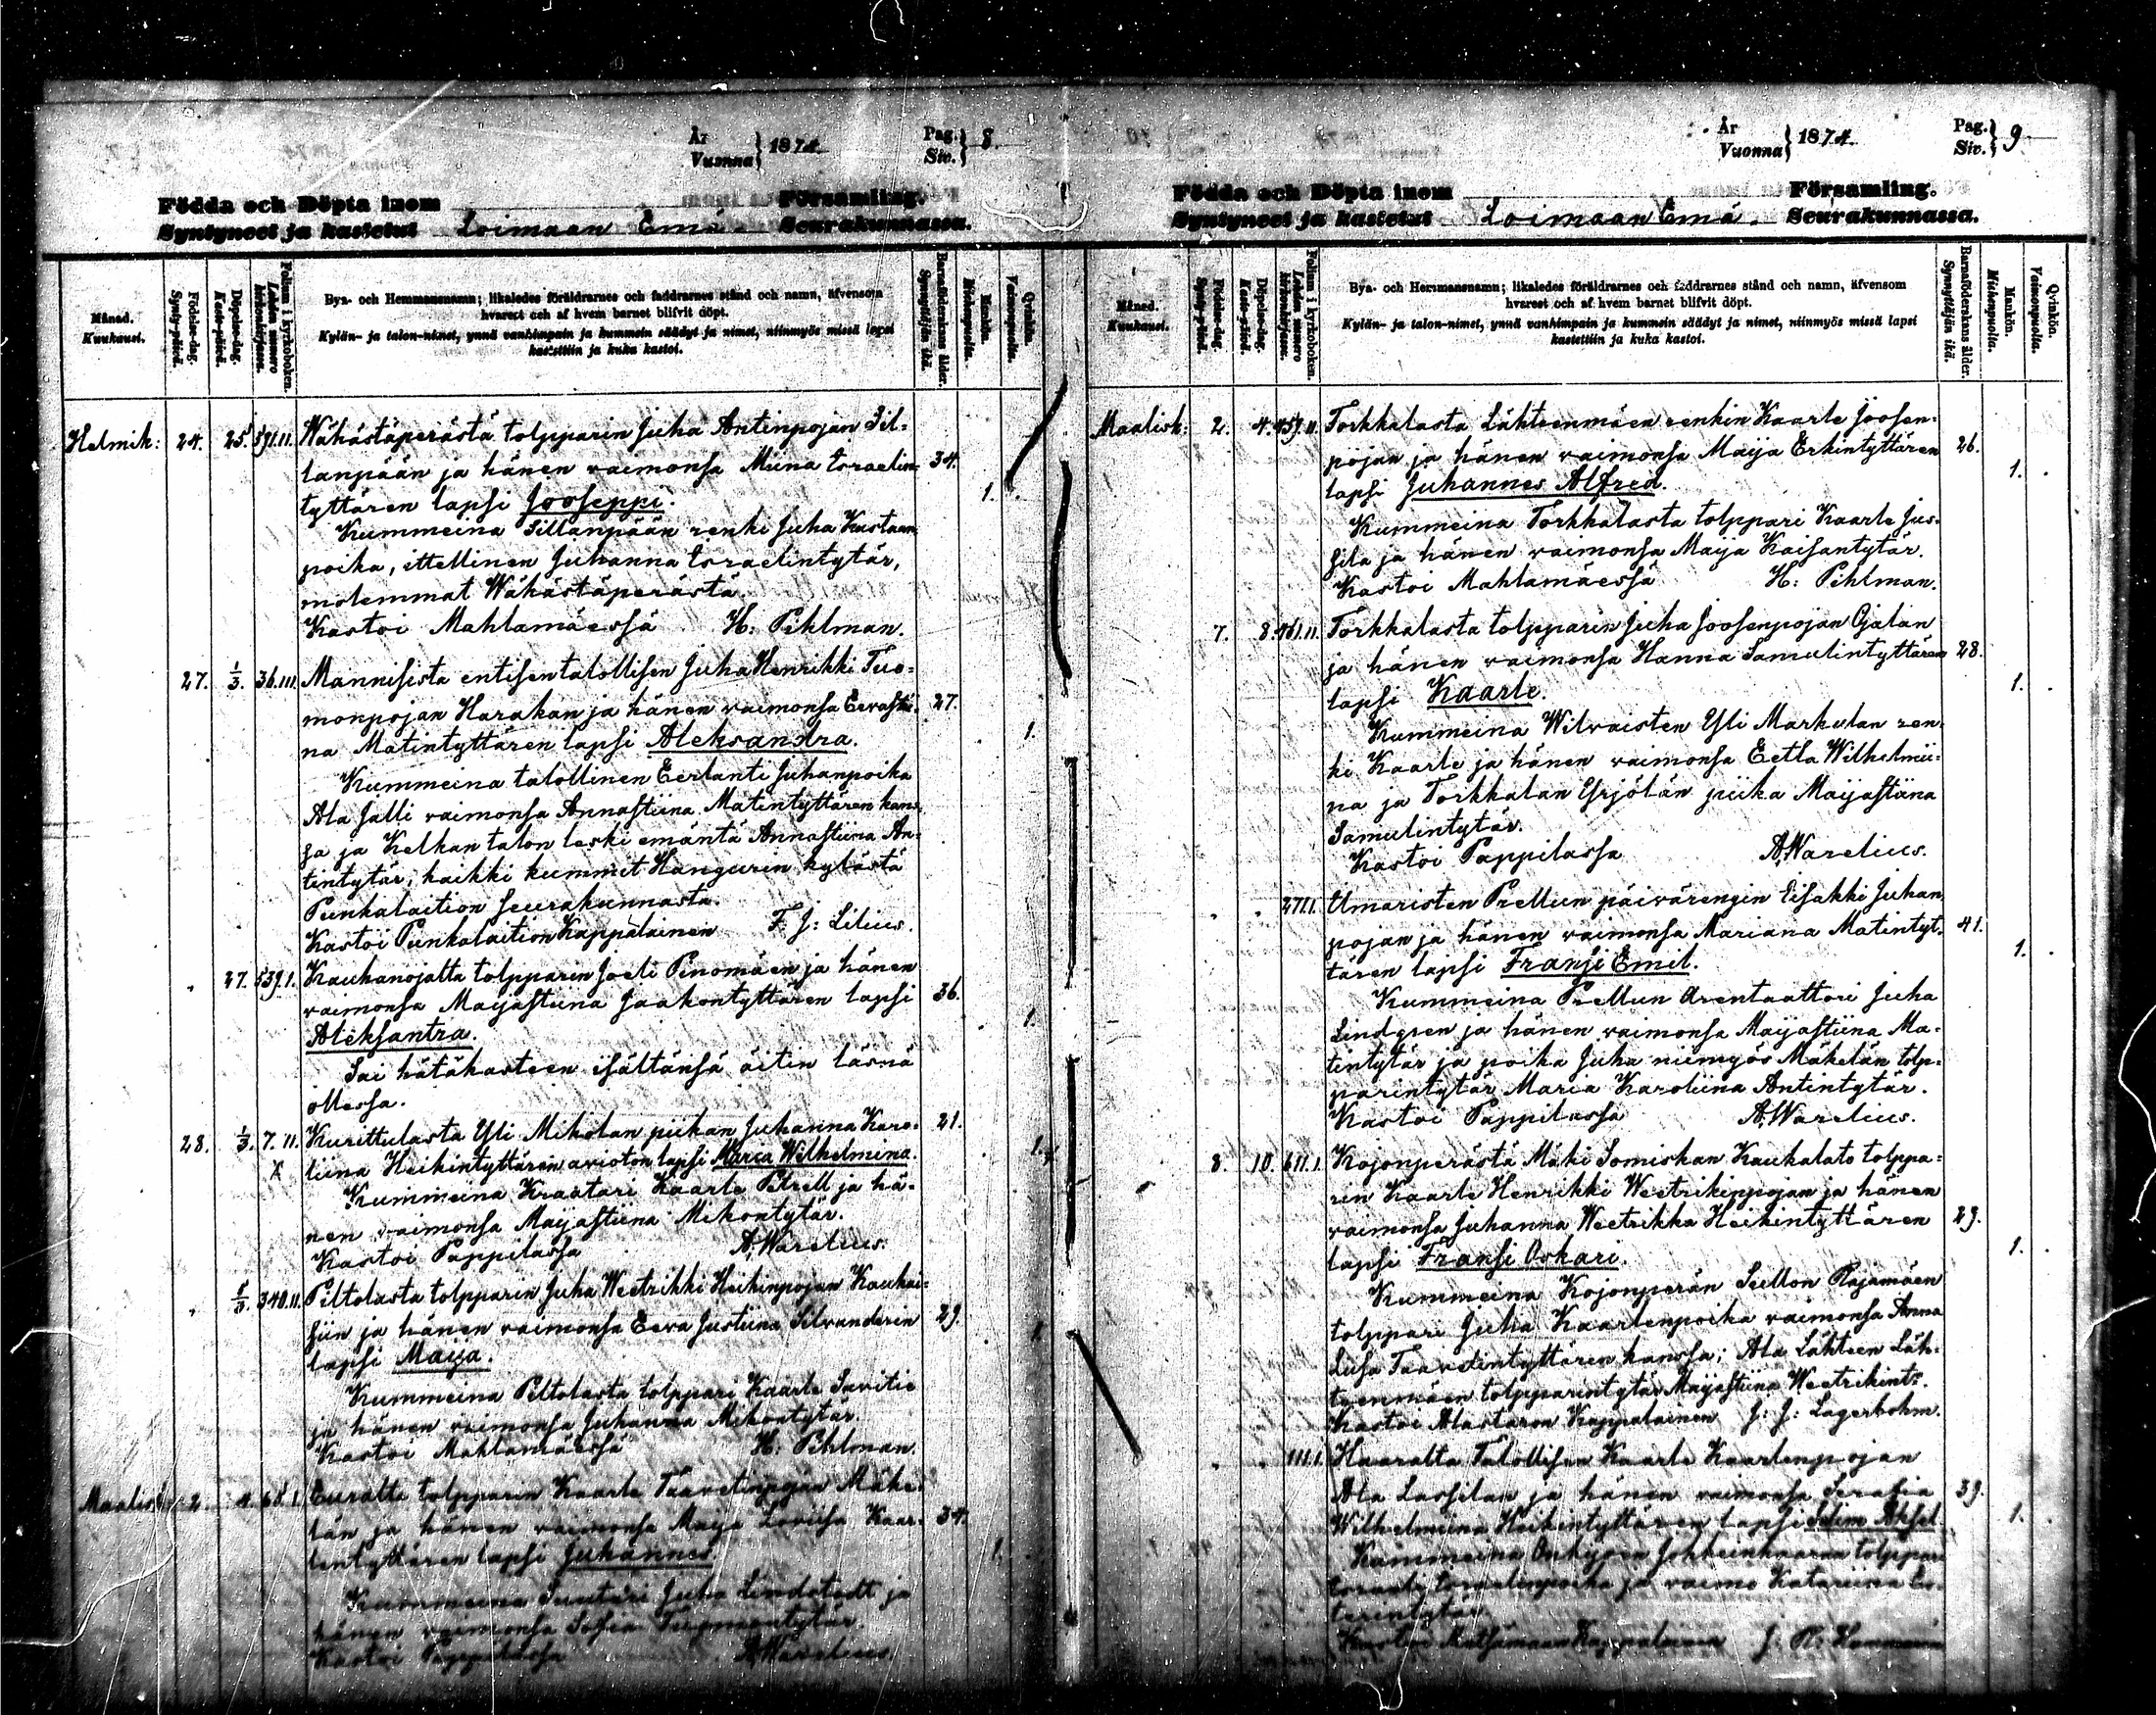 År
Vuonna } 1874. Pag.
Siv. } 8.
Födda och Döpta inom Församling.
Syntyneet ja kastetut Loimaan Emä Seurakunnassa.
Månad.
Kuukausi.
Födelse-dag.
Synty-päivä.
Döpelse-dag.
Kaste-päivä.
Folium i kyrkoboken.
Lehden numero kirkonkirjassa.
Bya- och Hemmansnamn; likaledes föräldrarnes och faddrarnes stånd och namn, äfvensom
hvarest och af hvem barnet blifvit döpt.
Kylän- ja talon-nimet, ynnä vanhimpain ja kummein säädyt ja nimet, niinmyös missä lapsi
kastettiin ja kuka kastoi.
Barnaföderskans ålder.
Synnyttäjän ikä.
Mankön.
Miehenpuolta.
Qvinkön.
Vaimonpuolta.
Helmik: 24. 25. 591.II. Wähästäperästä tolpparin Juha Antinpojan Sil-
lanpään ja hänen vaimonsa Miina Israelin- 34.
tyttären lapsi Jooseppi. 1.
Kummeina Sillanpään renki Juha Kustaan-
poika, ittellinen Juhanna Israelintytär,
molemmat Wähästäperästä.
Kastoi Mahlamäessä H: Pihlman.
27. 1/3. 36.III. Mannisista entisen talollisen Juha Henrikki Tuo-
monpojan Harakan ja hänen vaimonsa Eevasti- 27.
na Matintyttären lapsi Aleksandra. 1.
Kummeina talollinen Eerlanti Juhanpoika
Ala Jalli vaimonsa Annastiina Matintyttären kans-
sa ja Kelkan talon leski emäntä Annastiina An-
tintytär, kaikki kummit Hangurin kylästä
Punkalaition seurakunnasta.
Kastoi Punkalaition Kappalainen F. J: Lilius.
„ 27. 539.I. Kauhanojalta tolpparin Joeli Pinomäen ja hänen
vaimonsa Maijastiina Jaakontyttären lapsi 36.
Aleksantra. 1.
Sai hätäkasteen isältänsä äitin läsnä
ollessa.
28. 1/3. 7.II. Kurittulasta Yli Mikolan piikan Juhanna Karo- 21.
X liina Heikintyttären avioton lapsi Maria Wilhelmina. 1.
Kummeina Kraatari Kaarle Petrell ja hä-
nen vaimonsa Maijastiina Mikontytär.
Kastoi Pappilassa A. Warelius.
„ 5/3. 340.II. Peltolasta tolpparin Juha Weetrikki Heikinpojan Kauhai-
siin ja hänen vaimonsa Eeva Justiina Silvanderin 29.
lapsi Maija. 1.
Kummeina Peltolasta tolppari Kaarle Savitie
ja hänen vaimonsa Juhanna Mikontytär.
Kastoi Mahlamäessä H: Pihlman.
Maalisk: 2. 4. 68.I. Euralta tolpparin Kaarle Taavetinpojan Mäke-
län ja hänen vaimonsa Maija Loviisa Kaar- 34.
lentyttären lapsi Juhannes. 1.
Kummeina Suutari Juha Lindstedt ja
hänen vaimonsa Sofia Tuomontytär.
Kastoi Pappilassa A. Warelius.
År
Vuonna } 1874. Pag.
Siv. } 9
Födda och Döpta inom Församling.
Syntyneet ja kastetut Loimaan Emä. Seurakunnassa.
Månad.
Kuukausi.
Födelse-dag.
Synty-päivä.
Döpelse-dag.
Kaste-päivä.
Folium i kyrkoboken.
Lehden numero kirkonkirjassa.
Bya- och Hemmansnamn; likaledes föräldrarnes och faddrarnes stånd och namn, äfvensom
hvarest och af hvem barnet blifvit döpt.
Kylän- ja talon-nimet, ynnä vanhimpain ja kummein säädyt ja nimet, niinmyös missä lapsi
kastettiin ja kuka kastoi.
Barnaföderskans ålder.
Synnyttäjän ikä.
Mankön.
Miehenpuolta.
Qvinkön.
Vaimonpuolta.
Maalisk: 2. 4. 459.II. Torkkalasta Lähteenmäen renkin Kaarle Joosen-
pojan ja hänen vaimonsa Maija Erkintyttären 26.
lapsi Juhannes Alfred. 1.
Kummeina Torkkalasta tolppari Kaarle Jus-
sila ja hänen vaimonsa Maija Kaisantytär.
Kastoi Mahlamäessä H: Pihlman.
7. 8. 461.II. Torkkalasta tolpparin Juha Joosenpojan Ojalan
ja hänen vaimonsa Hanna Samulintyttären 28.
lapsi Kaarle. 1.
Kummeina Wilvaisten Yli Markulan ren-
ki Kaarle ja hänen vaimonsa Eetla Wilhelmii-
na ja Torkkalan Yrjölän piika Maijastiina
Samulintytär.
Kastoi Pappilassa A. Warelius.
„ „ 271.I. Onnaristen Prellun päivärengin Eisakki Juhan-
pojan ja hänen vaimonsa Mariana Matintyt- 41.
tären lapsi Fransi Emil. 1.
Kummeina Prellun Arentaattori Juha
Lindgren ja hänen vaimonsa Maijastiina Ma-
tintytär ja poika Juha niinmyös Mäkelän tolp-
parintytär Maria Karoliina Antintytär.
Kastoi Pappilassa A. Warelius.
8. 10. 611.I. Kojonperästä Mäki Somiskan Kaukalato tolppa-
rin Kaarle Henrikki Weetrikinpojan ja hänen
vaimonsa Juhanna Weetrikka Heikintyttären 29.
lapsi Fransi Oskari. 1.
Kummeina Kojonperän Sullon Rajamäen
tolppari Juha Kaarlenpoika vaimonsa Anna
Liisa Taavetintyttären kanssa; Ala Lähteen Läh-
teenmäen tolpparintytär Maijastiina Weetrikint:.
Kastoi Alastaron Kappalainen J: J: Lagerbohm.
„ „ 111.I. Haaralta Talollisen Kaarle Kaarlenpojan
Ala Lassilan ja hänen vaimonsa Serafia 39.
Wilhelmiina Heikintyttären lapsi Selim Aksel. 1.
Kummeina tolppari
Israeli Israelinpoika ja vaimo Katariina
Kastoi Kappalainen